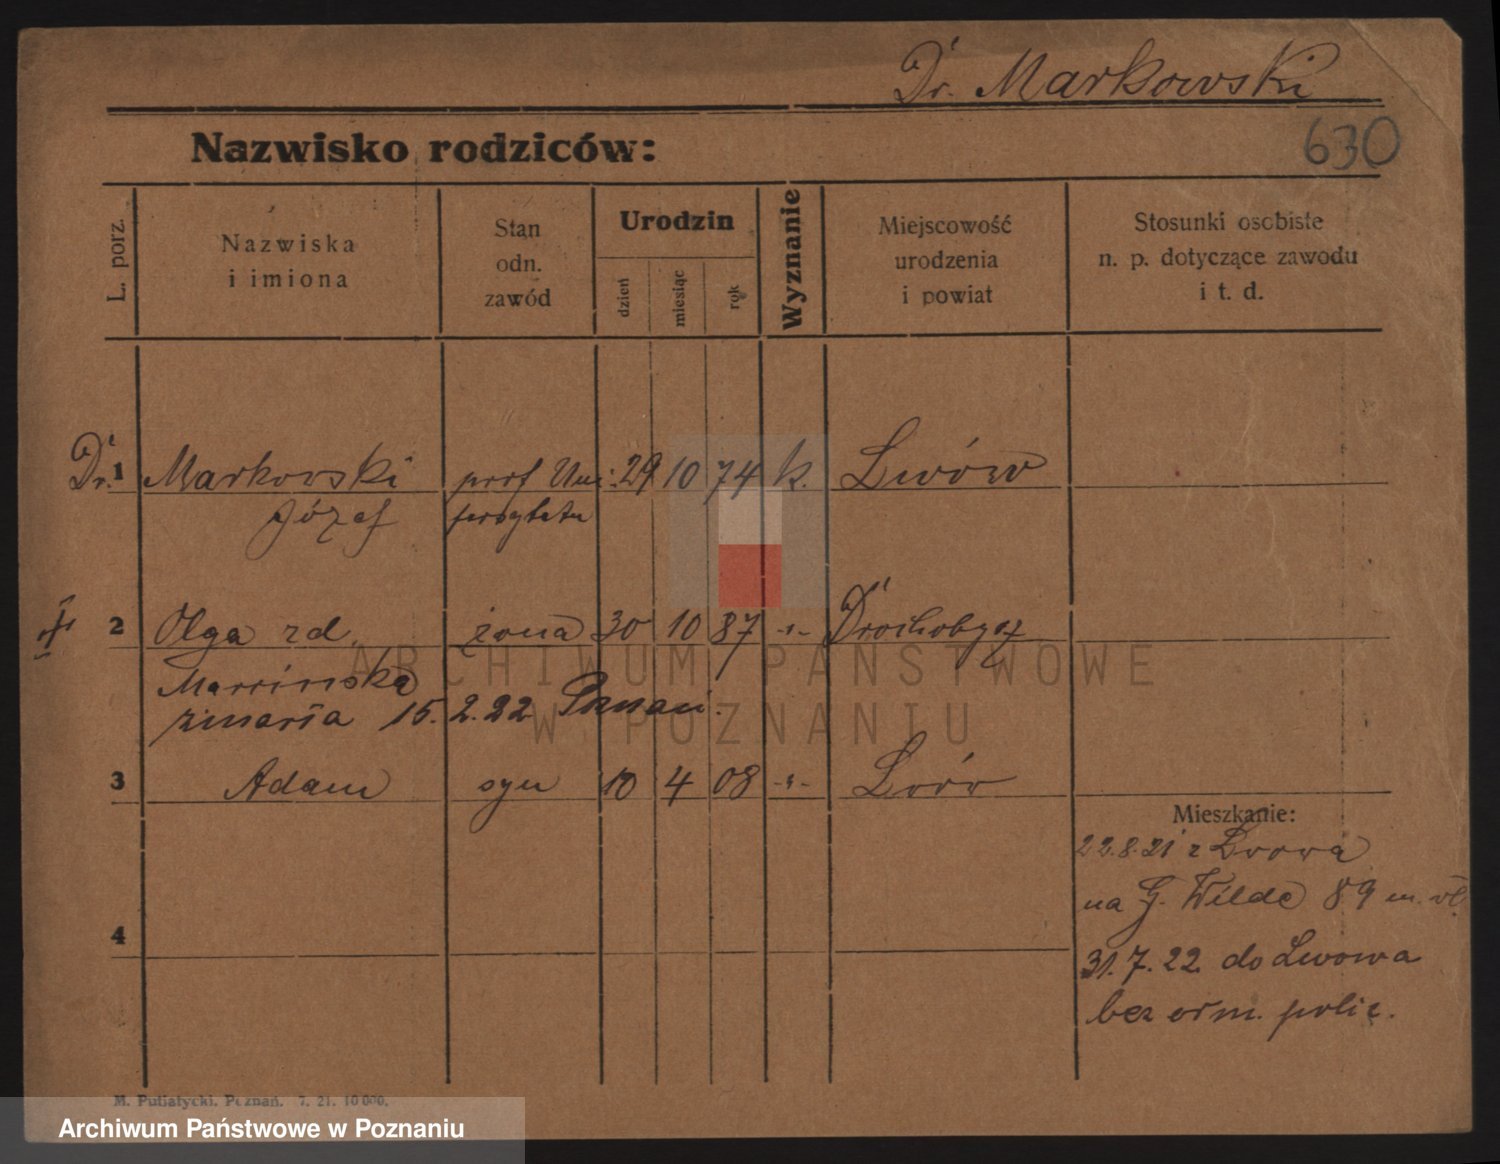 Dr. Markowski
630
Nazwisko rodziców:
L. porz.
Nazwiska
i imiona
Stan
odn.
zawód
Urodzin
dzień
miesiąc
rok
Wyznanie
Miejscowość
urodzenia
i powiat
Stosunki osobiste
n. p. dotyczące zawodu
i t. d.
Dr. 1 Markowski prof Uni: 29 10 74 k. Lwów
Józef
2 Olga zd. żona 30 10 87 -"- Drohobycz
Marcińska
zmarła 15.2.22 Poznań.
3 Adam syn 10 4 08 -"- Lwów
Mieszkanie:
22.8.21 z Lwowa
na G. Wilde 89 m.
4
31.7.22 do Lwowa
bez polic.
M. Putiatycki. Poznań. 7. 21. 10000.
ARCHIWUM PAŃSTWOWE
W POZNANIU
Archiwum Państwowe w Poznaniu